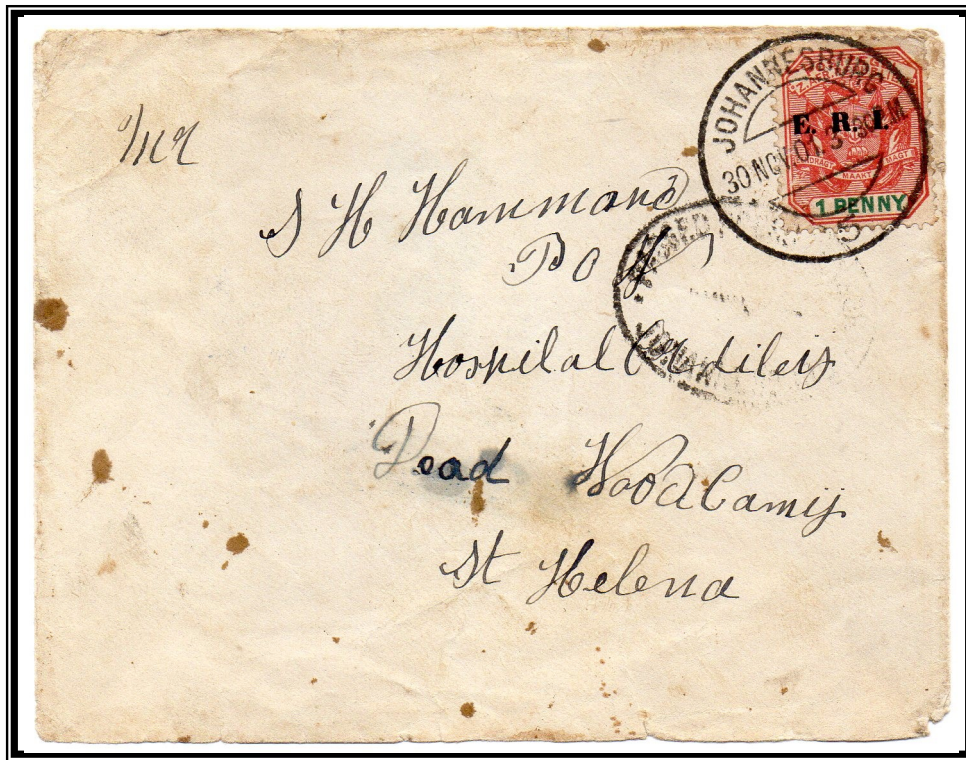 JOHANNESBURG
30 NOV. 01. 3 30 PM
E. R. I.
EENDRAGT MAAKT MAGT
1 PENNY
Mr
S H Hammond
P O W
Hospital
Dead Wood Camp
St Helena